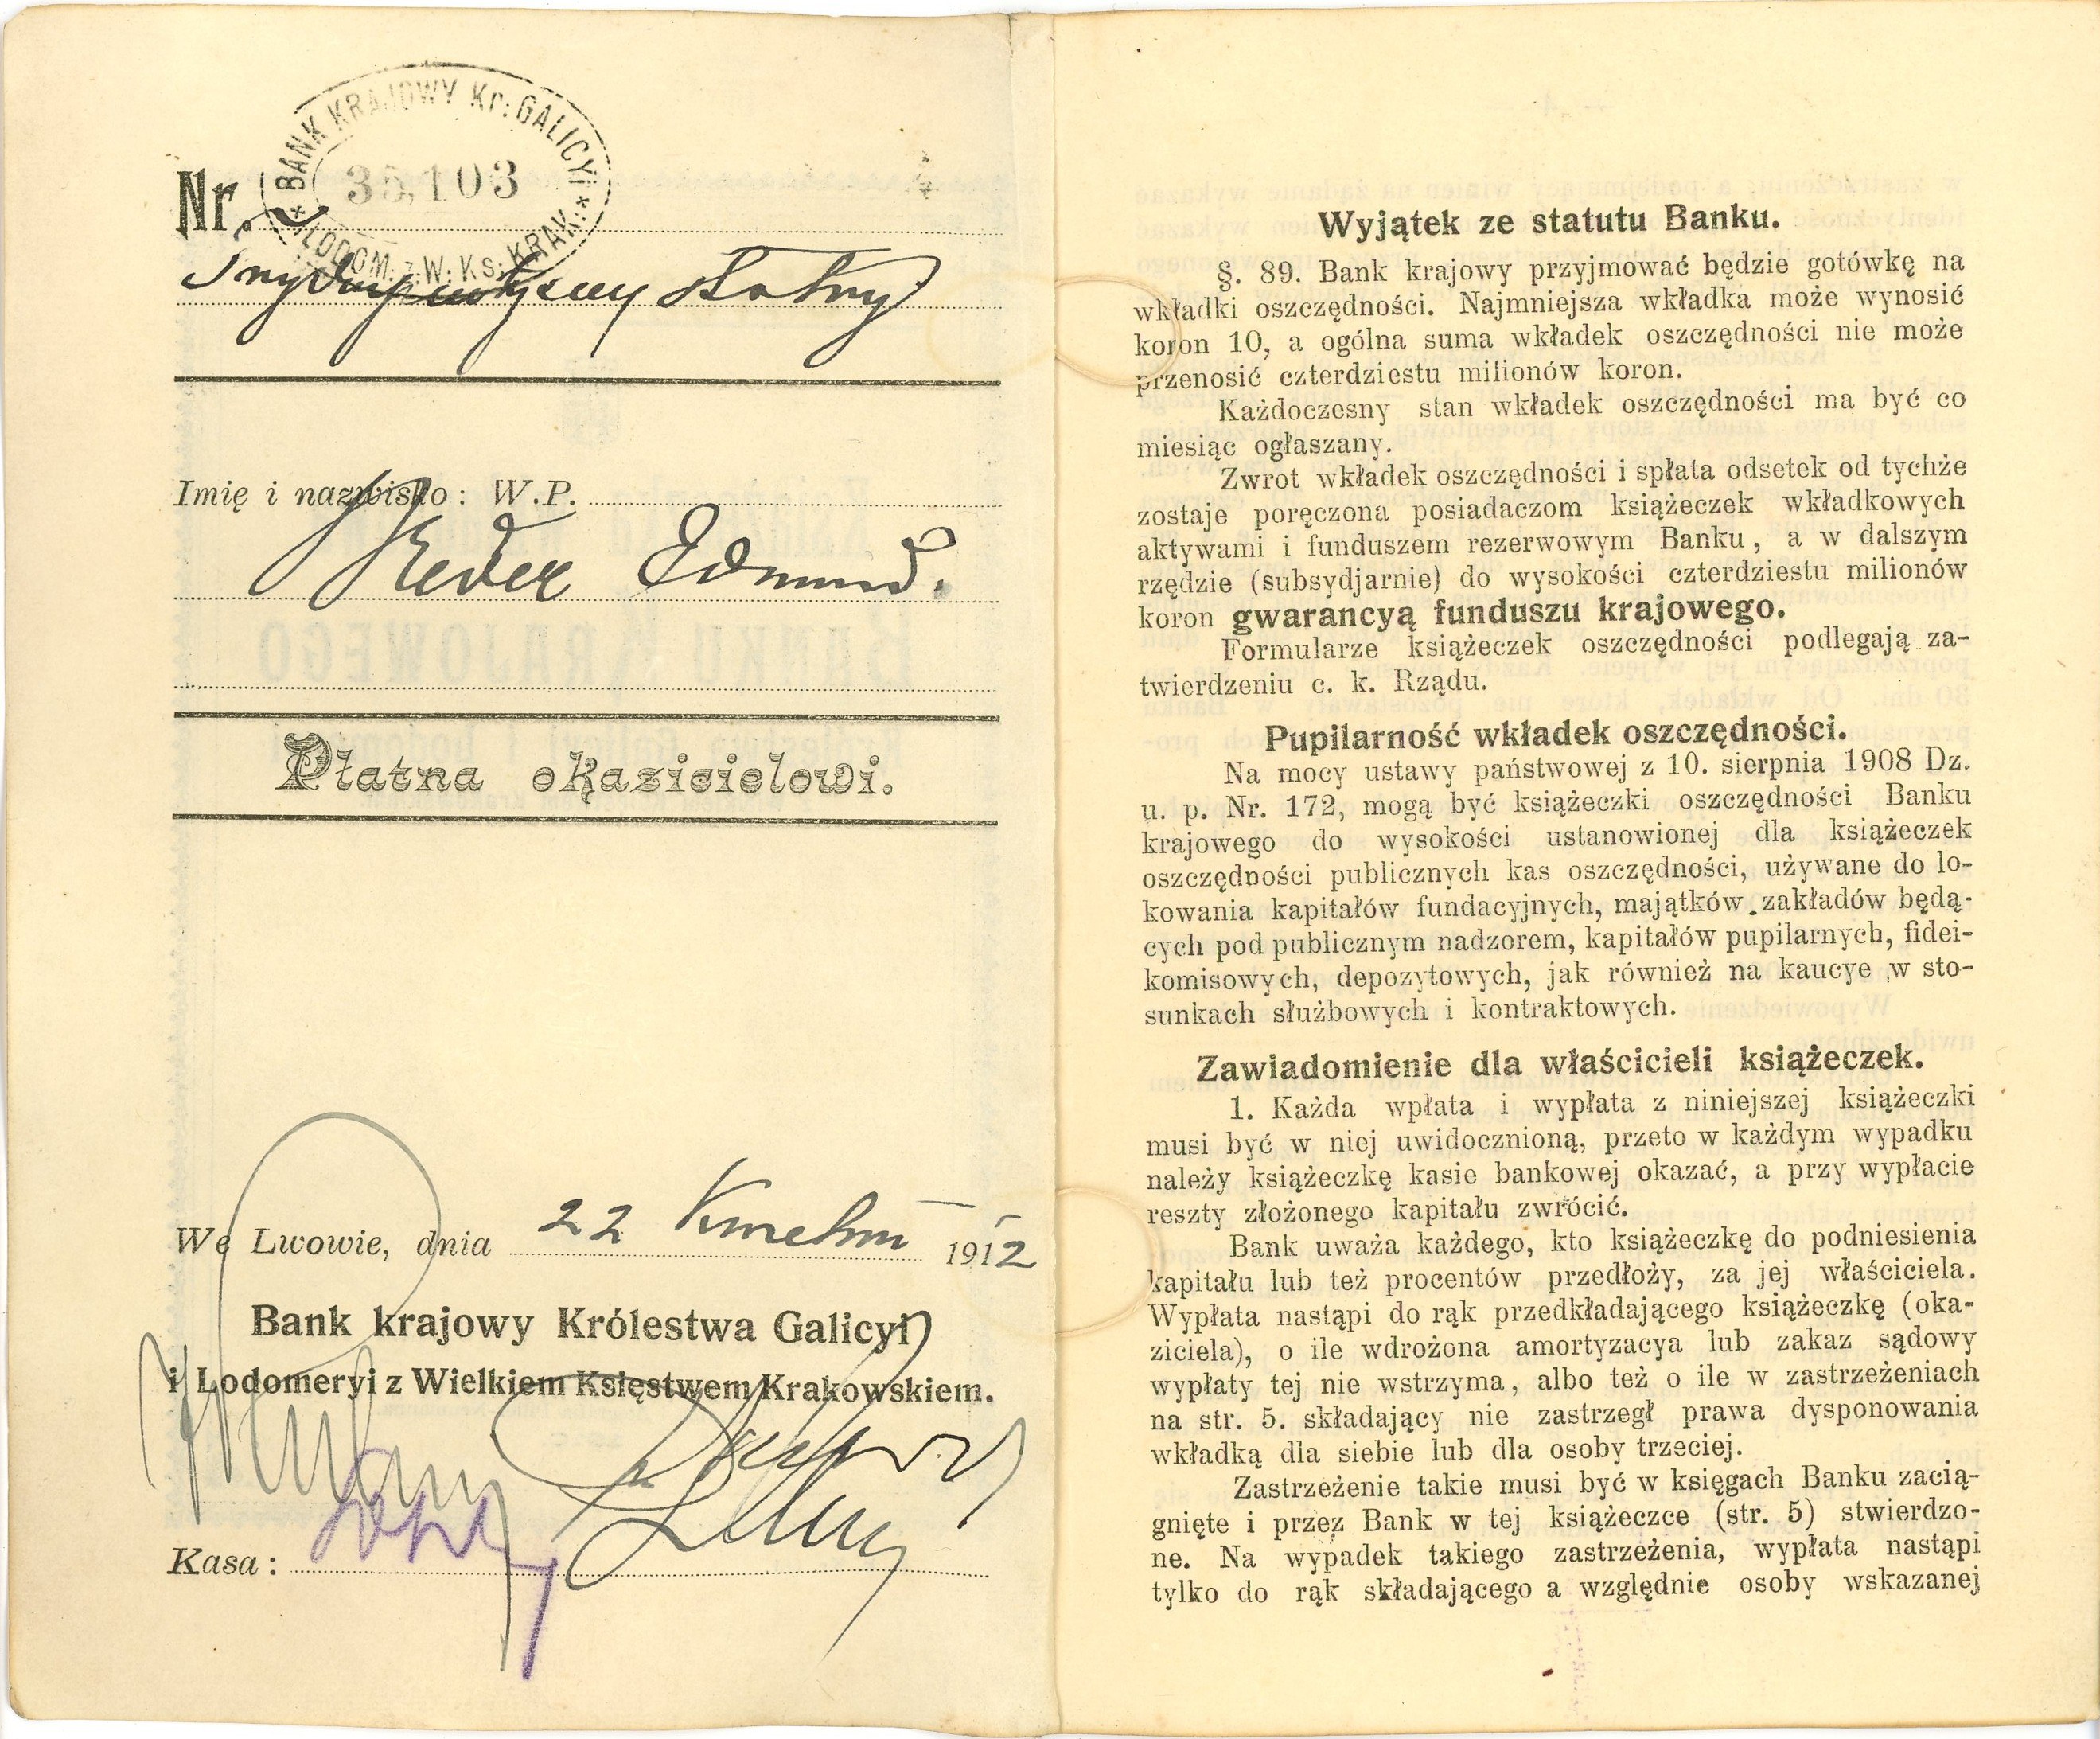 BANK KRAJOWY Kr: GALICYI
35,103
i LODOM: z W. Ks: KRAK.
Nr.
Imię i nazwisko: W.P.
Reder Edmund.
Płatna okazicielowi.
We Lwowie, dnia 22 Kwietnia 1912
Bank krajowy Królestwa Galicyi
i Lodomeryi z Wielkiem Księstwem Krakowskiem.
Kasa:
Wyjątek ze statutu Banku.
§. 89. Bank krajowy przyjmować będzie gotówkę na
wkładki oszczędności. Najmniejsza wkładka może wynosić
koron 10, a ogólna suma wkładek oszczędności nie może
przenosić czterdziestu milionów koron.
Każdoczesny stan wkładek oszczędności ma być co
miesiąc ogłaszany.
Zwrot wkładek oszczędności i spłata odsetek od tychże
zostaje poręczona posiadaczom książeczek wkładkowych
aktywami i funduszem rezerwowym Banku, a w dalszym
rzędzie (subsydjarnie) do wysokości czterdziestu milionów
koron gwarancyą funduszu krajowego.
Formularze książeczek oszczędności podlegają za-
twierdzeniu c. k. Rządu.
Pupilarność wkładek oszczędności.
Na mocy ustawy państwowej z 10. sierpnia 1908 Dz.
u. p. Nr. 172, mogą być książeczki oszczędności Banku
krajowego do wysokości ustanowionej dla książeczek
oszczędności publicznych kas oszczędności, używane do lo-
kowania kapitałów fundacyjnych, majątków zakładów będą-
cych pod publicznym nadzorem, kapitałów pupilarnych, fidei-
komisowych, depozytowych, jak również na kaucye w sto-
sunkach służbowych i kontraktowych.
Zawiadomienie dla właścicieli książeczek.
1. Każda wpłata i wypłata z niniejszej książeczki
musi być w niej uwidocznioną, przeto w każdym wypadku
należy książeczkę kasie bankowej okazać, a przy wypłacie
reszty złożonego kapitału zwrócić.
Bank uważa każdego, kto książeczkę do podniesienia
kapitału lub też procentów przedłoży, za jej właściciela.
Wypłata nastąpi do rąk przedkładającego książeczkę (oka-
ziciela), o ile wdrożona amortyzacya lub zakaz sądowy
wypłaty tej nie wstrzyma, albo też o ile w zastrzeżeniach
na str. 5. składający nie zastrzegł prawa dysponowania
wkładką dla siebie lub dla osoby trzeciej.
Zastrzeżenie takie musi być w księgach Banku zacią-
gnięte i przez Bank w tej książeczce (str. 5) stwierdzo-
ne. Na wypadek takiego zastrzeżenia, wypłata nastąpi
tylko do rąk składającego a względnie osoby wskazanej